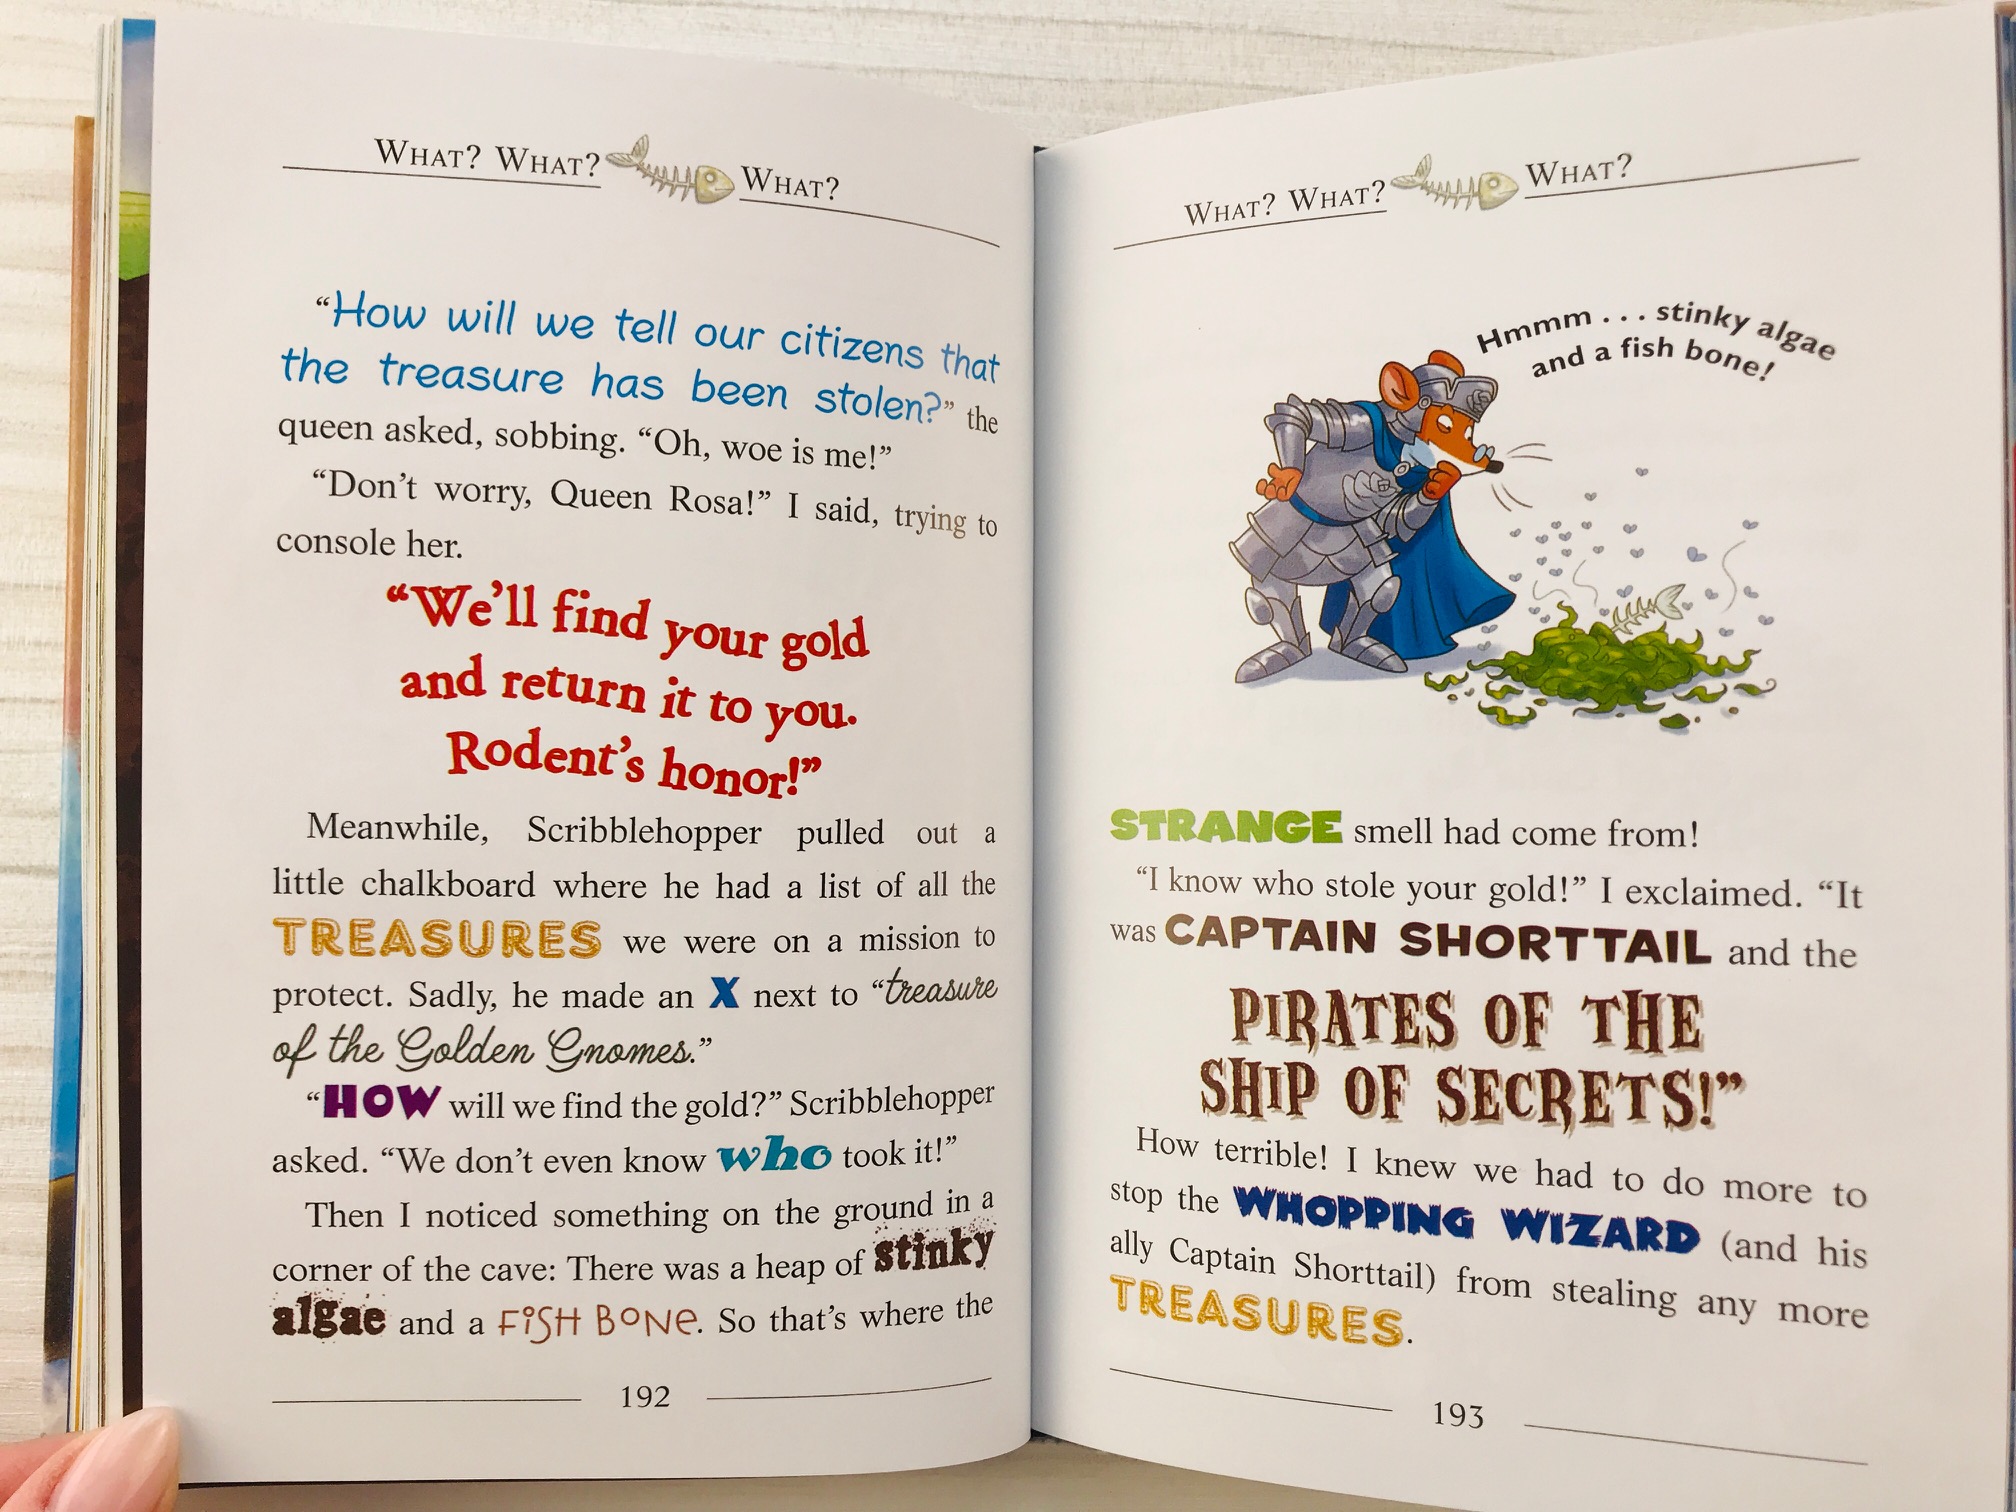 What? What? What?
“How will we tell our citizens that
the treasure has been stolen?” the
queen asked, sobbing. “Oh, woe is me!”
“Don’t worry, Queen Rosa!” I said, trying to
console her.
“We’ll find your gold
and return it to you.
Rodent’s honor!”
Meanwhile, Scribblehopper pulled out a
little chalkboard where he had a list of all the
TREASURES we were on a mission to
protect. Sadly, he made an X next to “treasure
of the Golden Gnomes.”
“HOW will we find the gold?” Scribblehopper
asked. “We don’t even know who took it!”
Then I noticed something on the ground in a
corner of the cave: There was a heap of stinky
algae and a FISH BONE. So that’s where the
192
What? What? What?
Hmmm . . . stinky algae
and a fish bone!
STRANGE smell had come from!
“I know who stole your gold!” I exclaimed. “It
was CAPTAIN SHORTTAIL and the
PIRATES OF THE
SHIP OF SECRETS!”
How terrible! I knew we had to do more to
stop the WHOPPING WIZARD (and his
ally Captain Shorttail) from stealing any more
TREASURES.
193